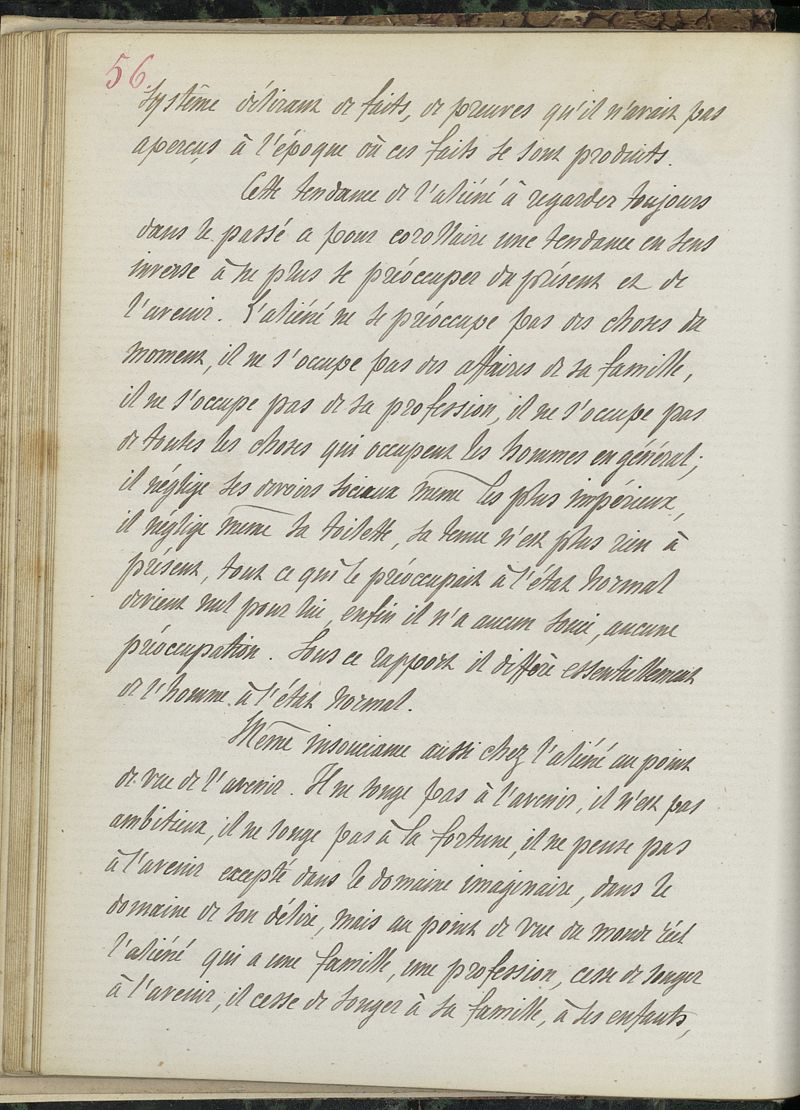 56
système délirant de faits, de preuves qu'il n'avait pas
aperçus à l'époque où ces faits se sont produits.
Cette tendance de l'aliéné à regarder toujours
dans le passé a pour corollaire une tendance en sens
inverse à ne plus se préoccuper du présent et de
l'avenir. L'aliéné ne se préoccupe pas des choses du
moment, il ne s'occupe pas des affaires de sa famille,
il ne s'occupe pas de sa profession, il ne s'occupe pas
de toutes les choses qui occupent les hommes en général;
il néglige ses devoirs sociaux même les plus impérieux,
il néglige même sa toilette, sa tenue n'est plus rien à
présent, tout ce qui le préoccupait à l'état normal
devient nul pour lui, enfin il n'a aucun souci, aucune
préoccupation. Sous ce rapport il diffère essentiellement
de l'homme à l'état normal.
Même insouciance aussi chez l'aliéné au point
de vue de l'avenir. Il ne songe pas à l'avenir, il n'est pas
ambitieux, il ne songe pas à la fortune, il ne pense pas
à l'avenir excepté dans le domaine imaginaire, dans le
domaine de son délire, mais au point de vue du monde réel
l'aliéné qui a une famille, une profession, cesse de songer
à l'avenir, il cesse de songer à sa famille, à ses enfants,